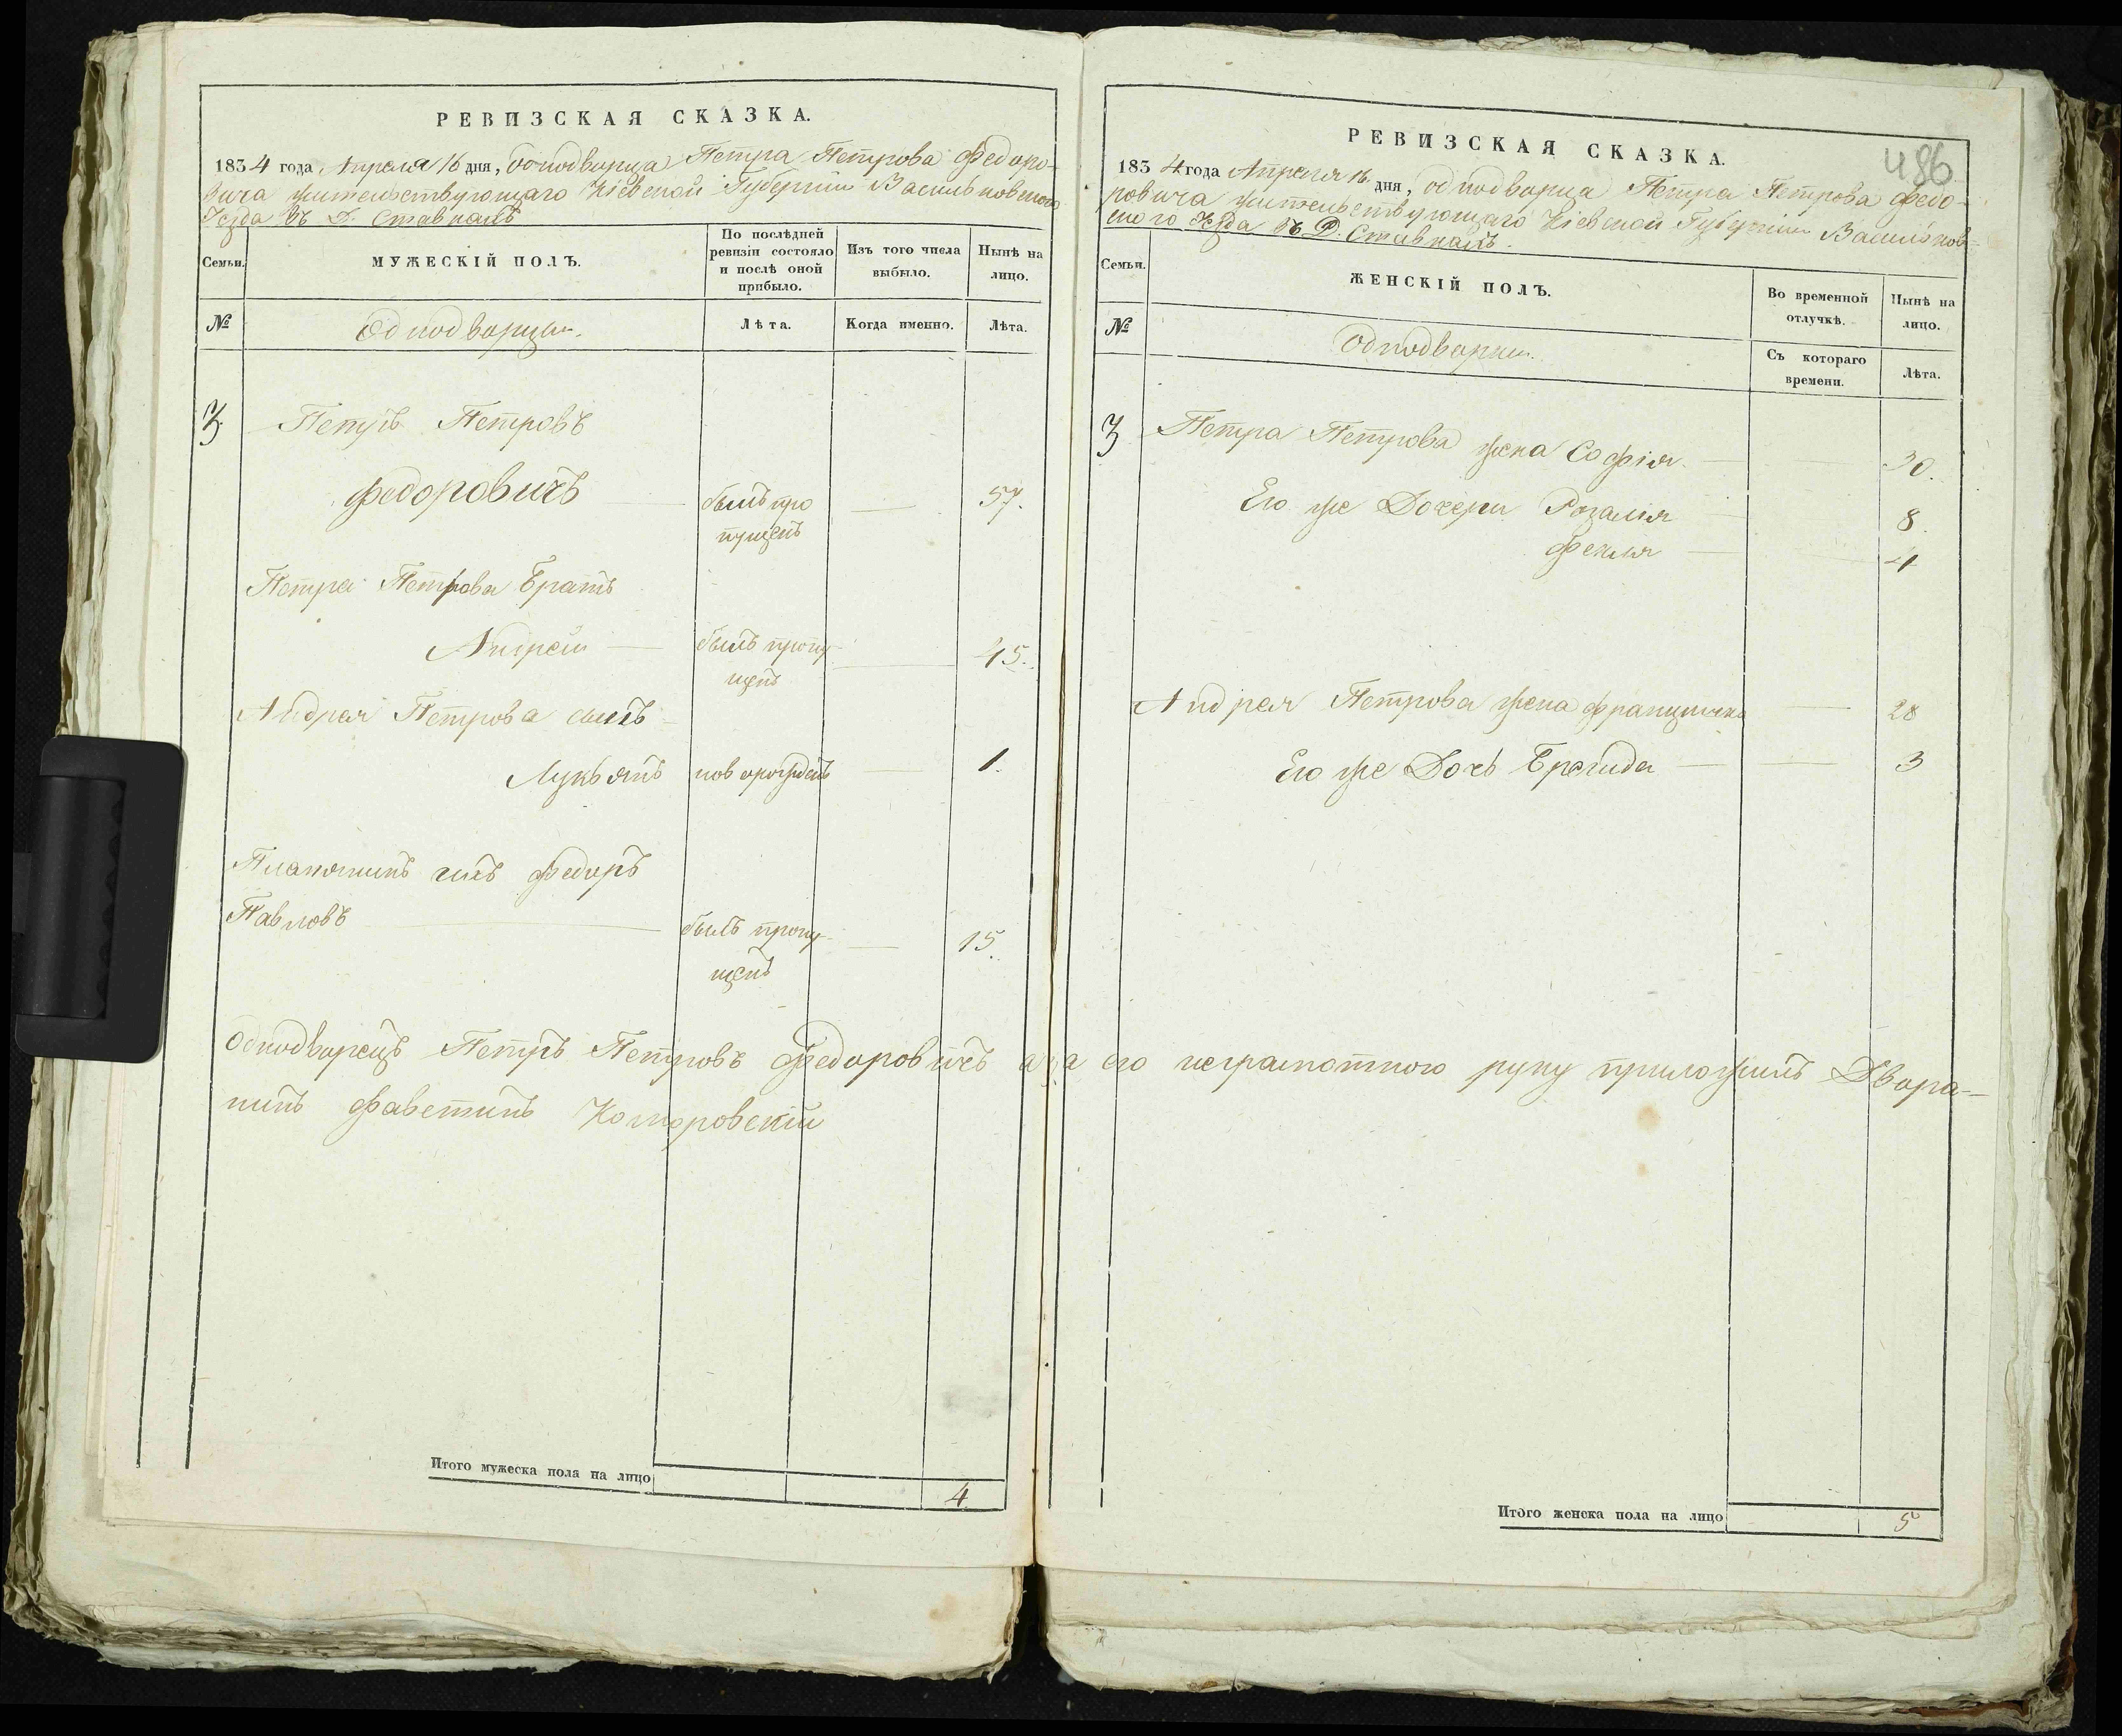 РЕВИЗСКАЯ СКАЗКА.
1834 года Апреля 16 дня, Однодворца Петра Петрова Федоро-
вича жительствующаго Кіевской Губерніи Васильковскаго
Уезда въ Д. Ставкахъ
Семьи.
МУЖЕСКІЙ ПОЛЪ.
По послѣдней
ревизіи состояло
и послѣ оной
прибыло.
Изъ того числа
выбыло.
Нынѣ на
лицо.
№
Однодворцы.
Лѣта.
Когда именно.
Лѣта.
3. Петръ Петровъ
Федоровичъ былъ про 57.
пущенъ
Петра Петрова Братъ
Андрей былъ пропу- 45.
щенъ
Андрея Петрова сынъ
Лукьянъ новорожденъ 1.
Племянникъ ихъ Федоръ
Павловъ былъ пропу- 15.
щенъ
Однодворецъ Петръ Петровъ Федоровичъ а за его неграмотного руку приложилъ Дворя-
нинъ Фавстинъ Коморовскій
Итого мужеска пола на лицо 4
486
РЕВИЗСКАЯ СКАЗКА.
1834 года Апреля 16 дня, однодворца Петра Петрова Федо-
ровича жительствующаго Кіевской Губерніи Васильков-
ского Уезда въ Д. Ставкахъ.
Семьи.
ЖЕНСКІЙ ПОЛЪ.
Во временной
отлучкѣ.
Нынѣ на
лицо.
№
Однодворки.
Съ котораго
времени.
Лѣта.
3 Петра Петрова жена Софія 30.
Его же Дочери Розалія 8.
Фекля 4
Андрея Петрова жена Францишка 28
Его же Дочь Брегида 3
Итого женска пола на лицо 5